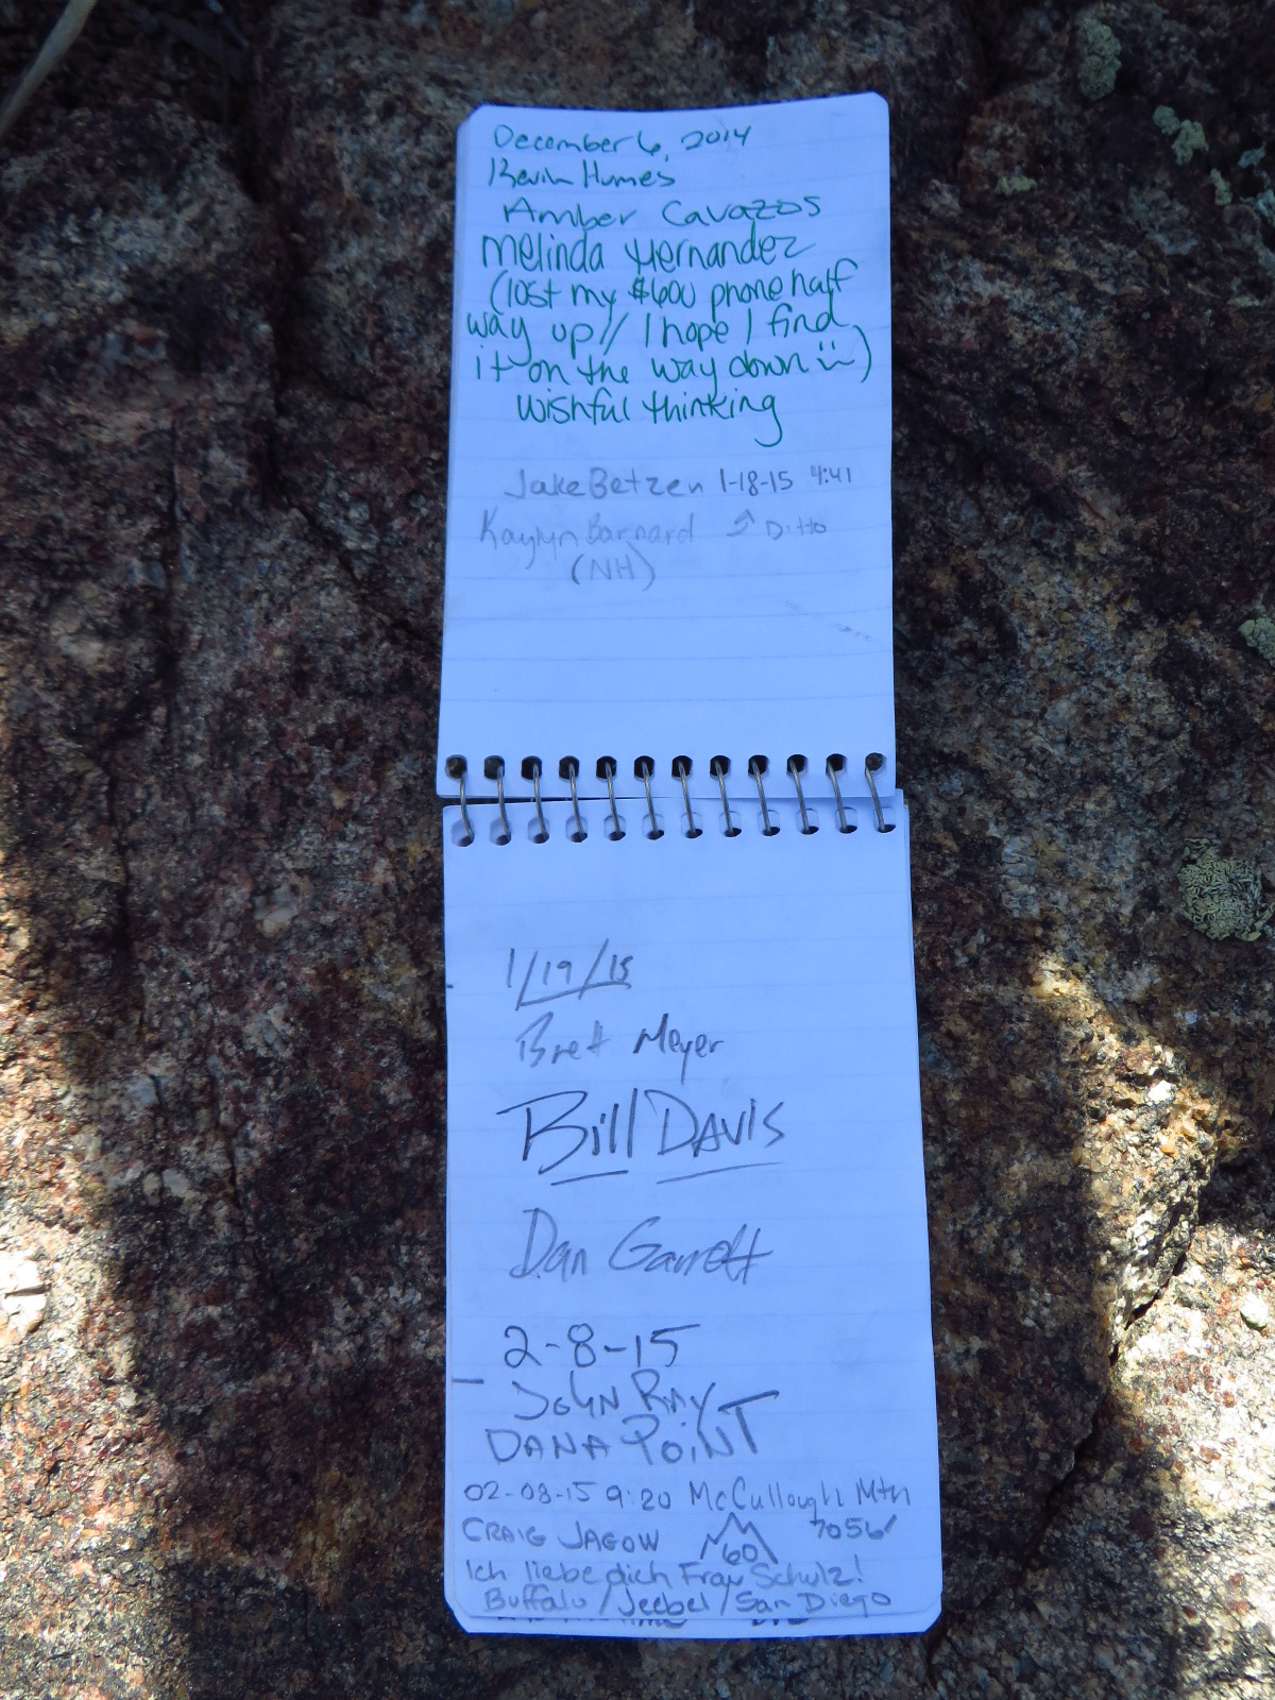 December 6, 2014
Kevin Humes
Amber Cavazos
Melinda Hernandez
(lost my $600 phone half
way up// I hope I find
it on the way down )
wishful thinking
Jake Betzen 1-18-15 4:41
Kaylyn Barnard Ditto
(NH)
1/19/15
Brett Meyer
Bill DAVIS
Dan Garrett
2-8-15
JOHN RAY
DANA POiNT
02-08-15 9:20 McCullough Mtn
CRAIG JAGOW 60 7056'
Ich liebe dich Frau Schulz!
Buffalo / Jeebel / San Diego